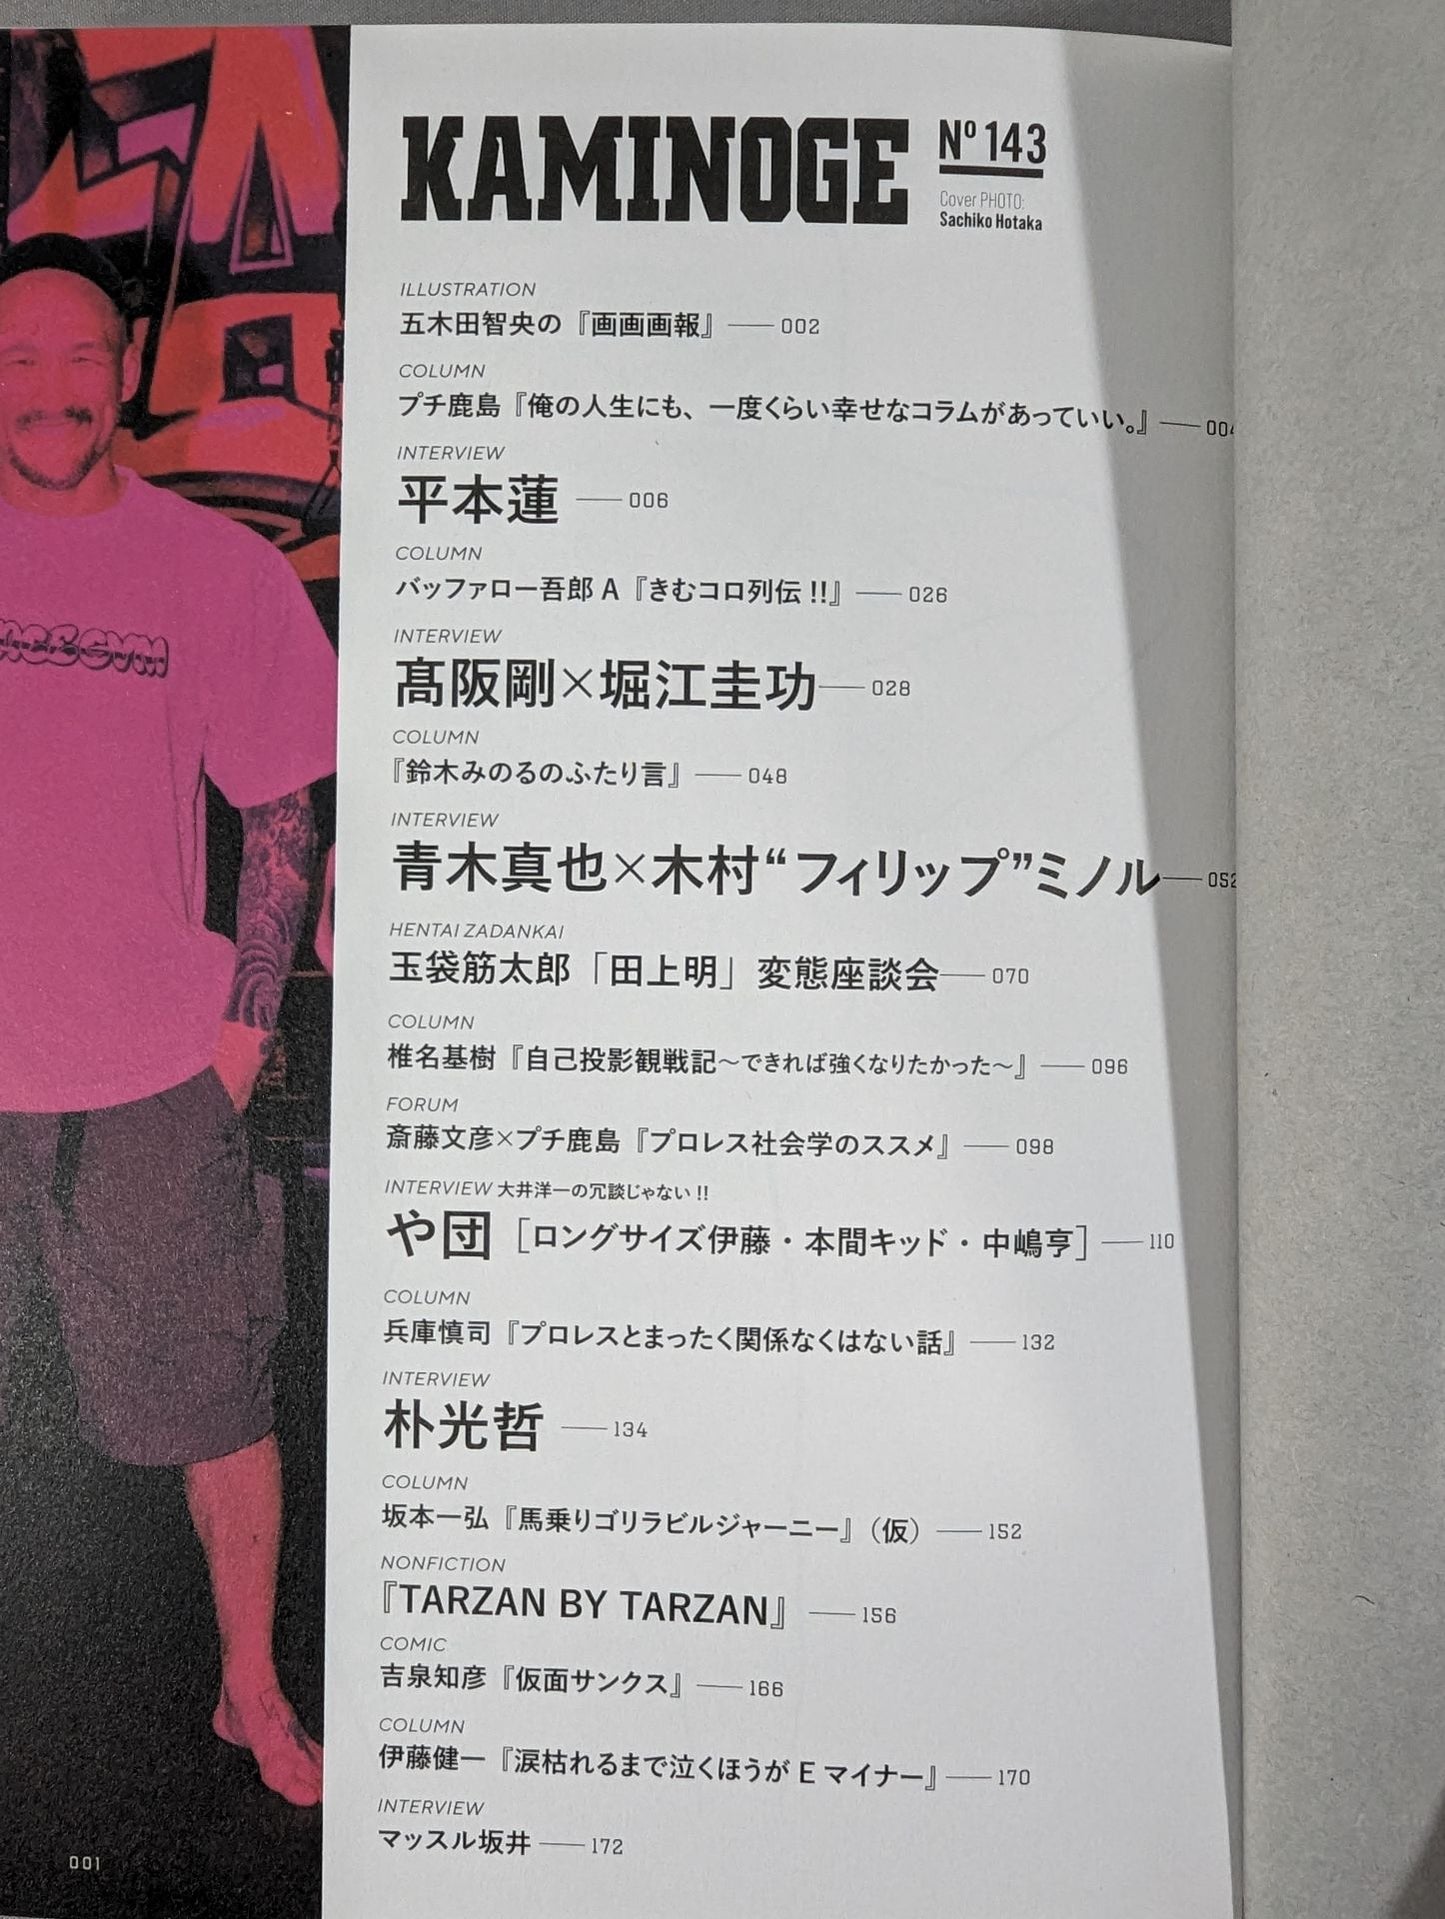 KAMINOGE Nº 143
Cover PHOTO:
Sachiko Hotaka
ILLUSTRATION
五木田智央の『画画画報』 —— 002
COLUMN
プチ鹿島『俺の人生にも、一度くらい幸せなコラムがあっていい。』 —— 004
INTERVIEW
平本蓮 —— 006
COLUMN
バッファロー吾郎 A『きむコロ列伝!!』 —— 026
INTERVIEW
髙阪剛×堀江圭功 —— 028
COLUMN
『鈴木みのるのふたり言』 —— 048
INTERVIEW
青木真也×木村“フィリップ”ミノル —— 052
HENTAI ZADANKAI
玉袋筋太郎「田上明」変態座談会 —— 070
COLUMN
椎名基樹『自己投影観戦記〜できれば強くなりたかった〜』 —— 096
FORUM
斎藤文彦×プチ鹿島『プロレス社会学のススメ』 —— 098
INTERVIEW 大井洋一の冗談じゃない!!
や団［ロングサイズ伊藤・本間キッド・中嶋亨］ —— 110
COLUMN
兵庫慎司『プロレスとまったく関係なくはない話』 —— 132
INTERVIEW
朴光哲 —— 134
COLUMN
坂本一弘『馬乗りゴリラビルジャーニー』（仮） —— 152
NONFICTION
『TARZAN BY TARZAN』 —— 156
COMIC
吉泉知彦『仮面サンクス』 —— 166
COLUMN
伊藤健一『涙枯れるまで泣くほうが E マイナー』 —— 170
INTERVIEW
マッスル坂井 —— 172
001